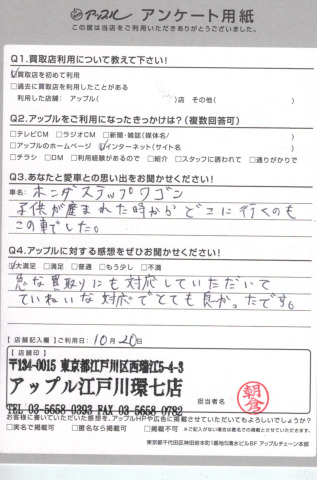 アップル アンケート用紙
この度は当店をご利用いただきありがとうございました。
Q1.買取店利用について教えて下さい!
☑買取店を初めて利用
□過去に買取店を利用したことがある
利用した店舗：アップル( )店 その他( )
Q2.アップルをご利用になったきっかけは?(複数回答可)
□テレビCM □ラジオCM □新聞・雑誌(媒体名/ )
□アップルのホームページ ☑インターネット(サイト名 )
□チラシ □DM □利用経験があるので □紹介 □スタッフに誘われて □通りがかりで
Q3.あなたと愛車との思い出をお聞かせください!
車名：ホンダステップワゴン
子供が産まれた時からどこに行くのも
この車でした。
Q4.アップルに対する感想をぜひお聞かせください!
☑大満足 □満足 □普通 □もう少し □不満
急な買取りにも対応していただいて
ていねいな対応でとても良かったです。
【店舗記入欄】ご利用日：10月20日
【店舗印】
〒134-0015 東京都江戸川区西瑞江5-4-3
アップル江戸川環七店
TEL 03-5658-0393 FAX 03-5658-0782
担当者名 朝倉
お客様に書いていただいた感想を、アップルHPや広告に掲載させていただいてもよろしいでしょうか?
□実名で掲載可 □匿名なら掲載可 □掲載不可 ※ご記入がない場合は匿名での掲載とさせていただきます。
東京都千代田区神田岩本町1番地5清水ビル6F アップルチェーン本部